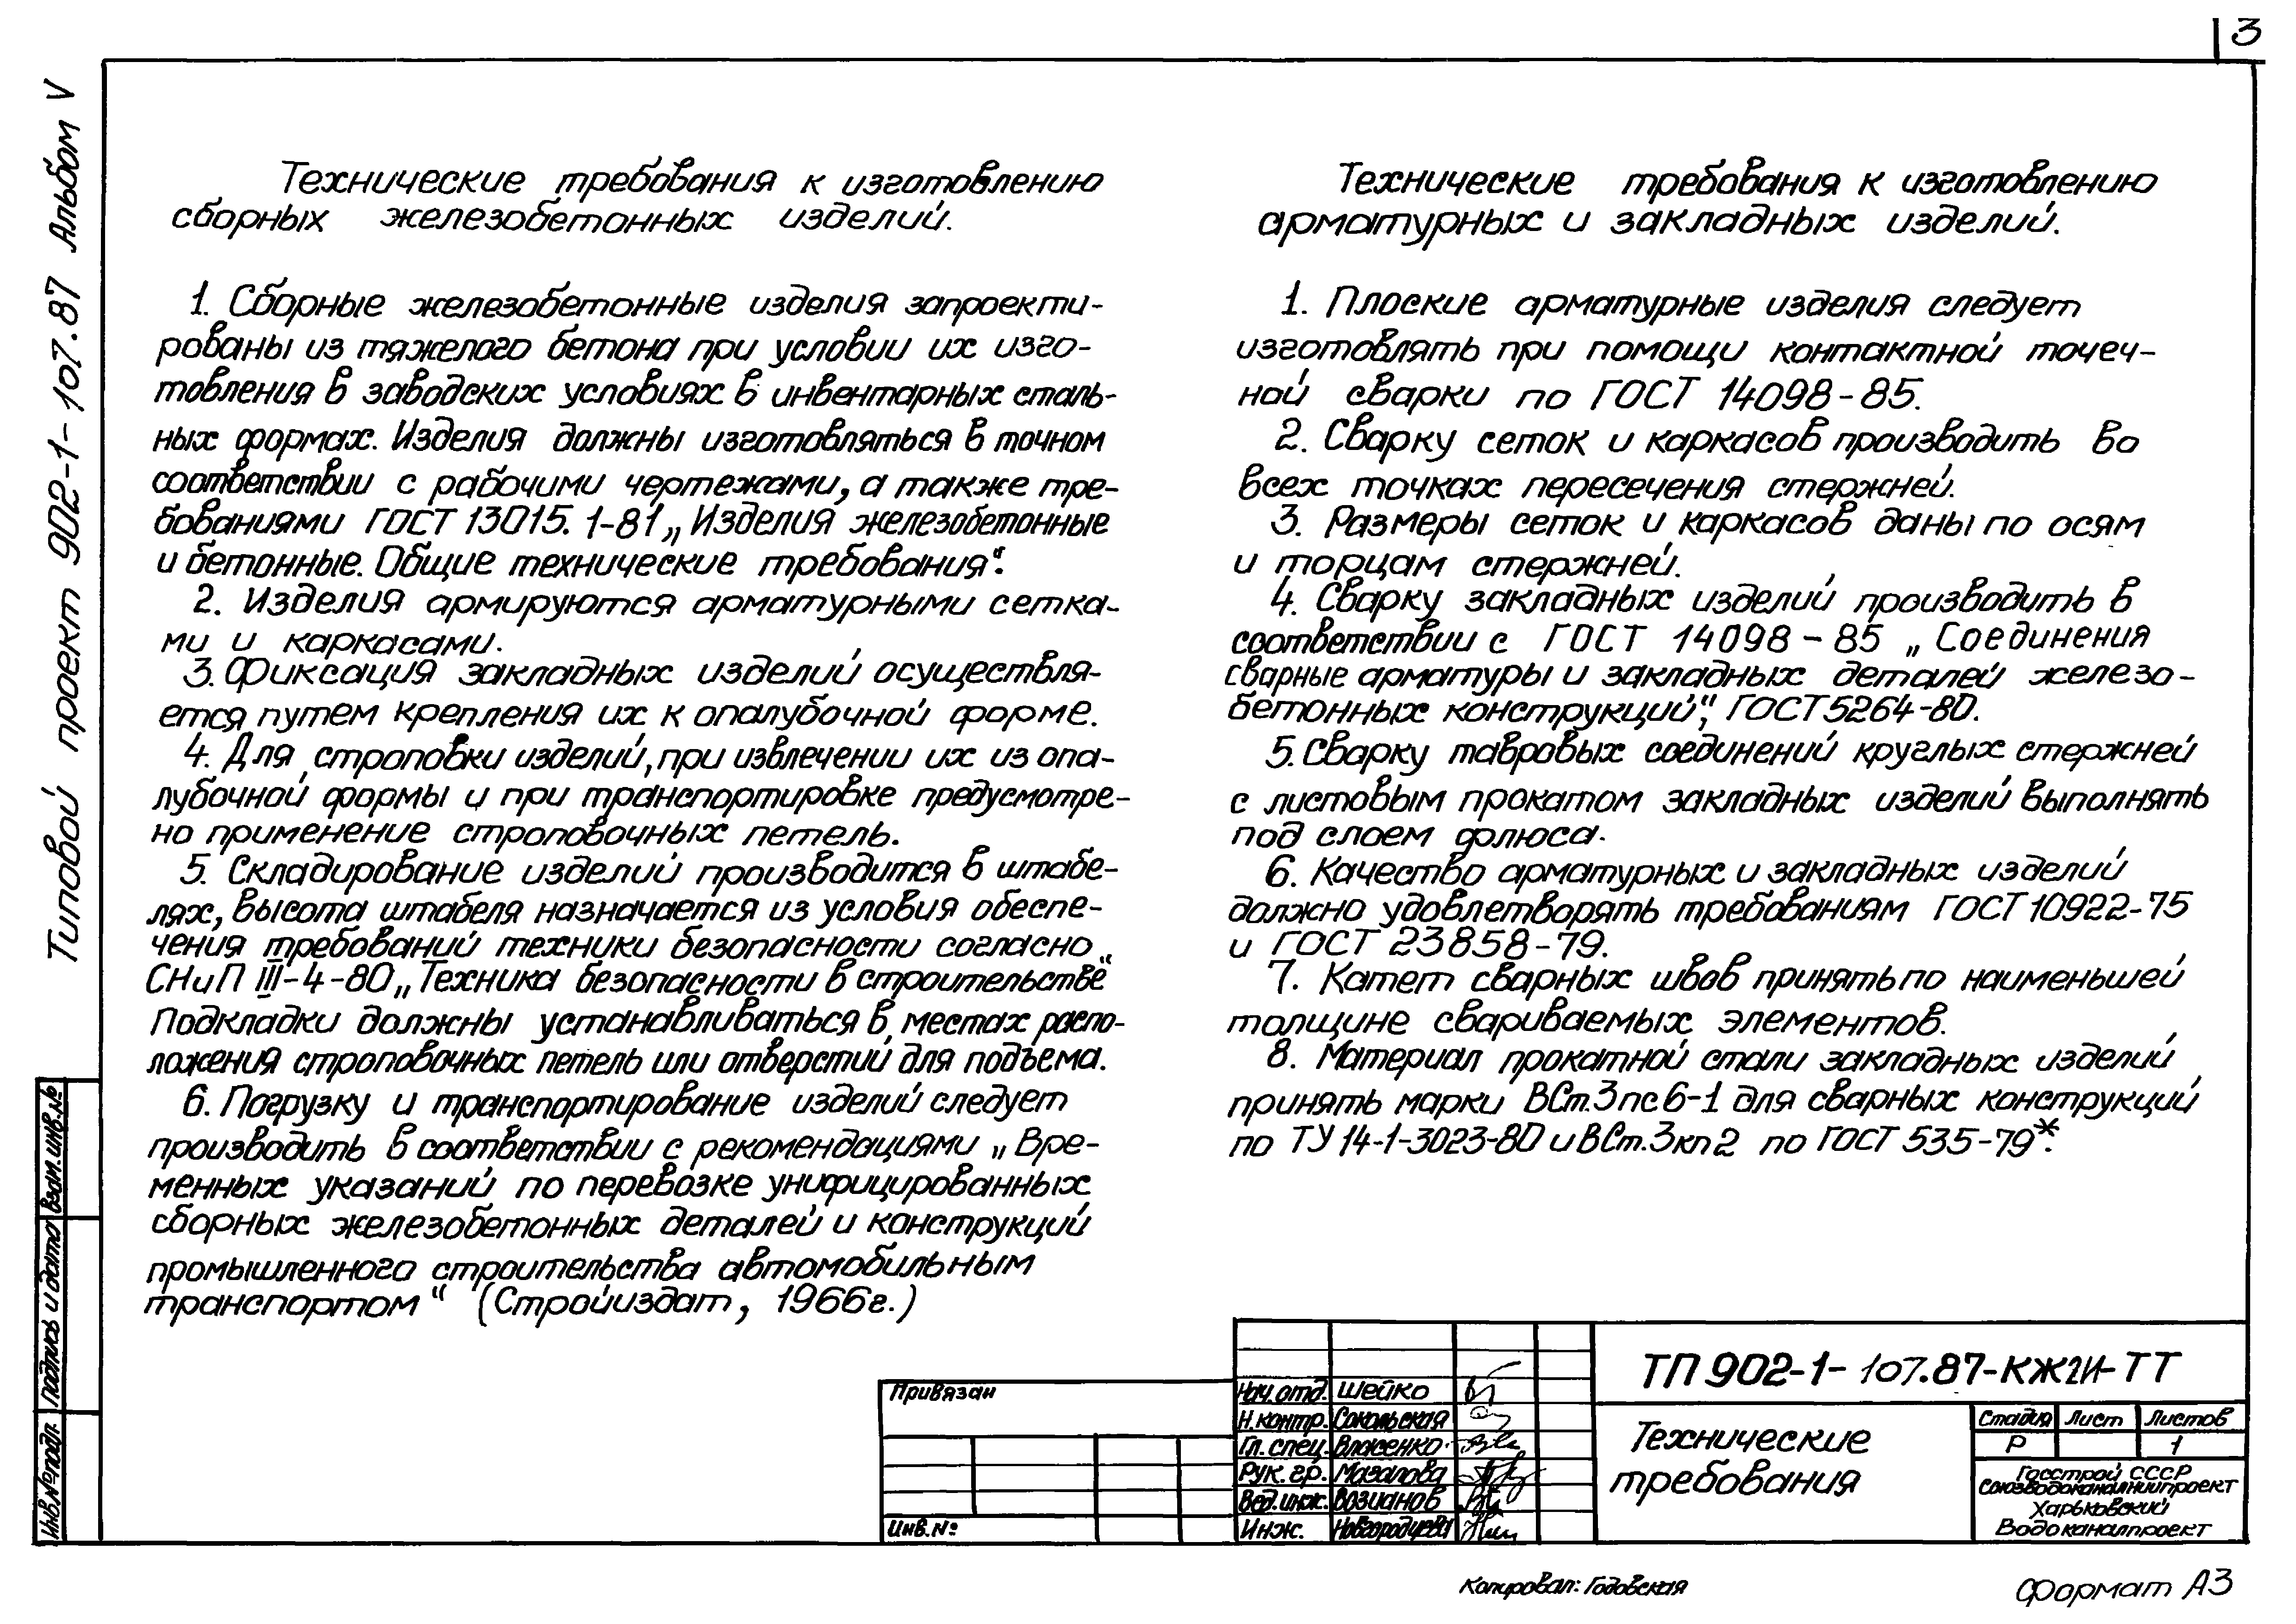 3
Типовой проект 902-1-107.87 Альбом V
Технические требования к изготовлению
сборных железобетонных изделий.
1. Сборные железобетонные изделия запроекти-
рованы из тяжелого бетона при условии их изго-
товления в заводских условиях в инвентарных сталь-
ных формах. Изделия должны изготовляться в точном
соответствии с рабочими чертежами, а также тре-
бованиями ГОСТ 13015.1-81 „Изделия железобетонные
и бетонные. Общие технические требования“.
2. Изделия армируются арматурными сетка-
ми и каркасами.
3. Фиксация закладных изделий осуществля-
ется путем крепления их к опалубочной форме.
4. Для строповки изделий, при извлечении их из опа-
лубочной формы и при транспортировке предусмотре-
но применение строповочных петель.
5. Складирование изделий производится в штабе-
лях, высота штабеля назначается из условия обеспе-
чения требований техники безопасности согласно
СНиП III-4-80 „Техника безопасности в строительстве“
Подкладки должны устанавливаться в местах распо-
ложения строповочных петель или отверстий для подъема.
6. Погрузку и транспортирование изделий следует
производить в соответствии с рекомендациями „Вре-
менных указаний по перевозке унифицированных
сборных железобетонных деталей и конструкций
промышленного строительства автомобильным
транспортом“ (Стройиздат, 1966г.)
Технические требования к изготовлению
арматурных и закладных изделий.
1. Плоские арматурные изделия следует
изготовлять при помощи контактной точеч-
ной сварки по ГОСТ 14098-85.
2. Сварку сеток и каркасов производить во
всех точках пересечения стержней.
3. Размеры сеток и каркасов даны по осям
и торцам стержней.
4. Сварку закладных изделий производить в
соответствии с ГОСТ 14098-85 „Соединения
сварные арматуры и закладных деталей железо-
бетонных конструкций“, ГОСТ 5264-80.
5. Сварку тавровых соединений круглых стержней
с листовым прокатом закладных изделий выполнять
под слоем флюса.
6. Качество арматурных и закладных изделий
должно удовлетворять требованиям ГОСТ 10922-75
и ГОСТ 23858-79.
7. Катет сварных швов принять по наименьшей
толщине свариваемых элементов.
8. Материал прокатной стали закладных изделий
принять марки ВСт.3пс6-1 для сварных конструкций
по ТУ 14-1-3023-80 и ВСт.3кп2 по ГОСТ 535-79*.
Инв.№подл. Подпись и дата Взам.инв.№
Привязан
Инв.№
Нач.отд. Шейко
Н.контр. Сокольская
Гл.спец. Власенко
Рук.гр. Мазалова
Вед.инж. Возианов
Инж. Новгородцева
ТП 902-1-107.87-КЖ2И-ТТ
Технические
требования
Стадия Лист Листов
Р 1
Госстрой СССР
Союзводоканалниипроект
Харьковский
Водоканалпроект
Копировал: Годовская
Формат А3